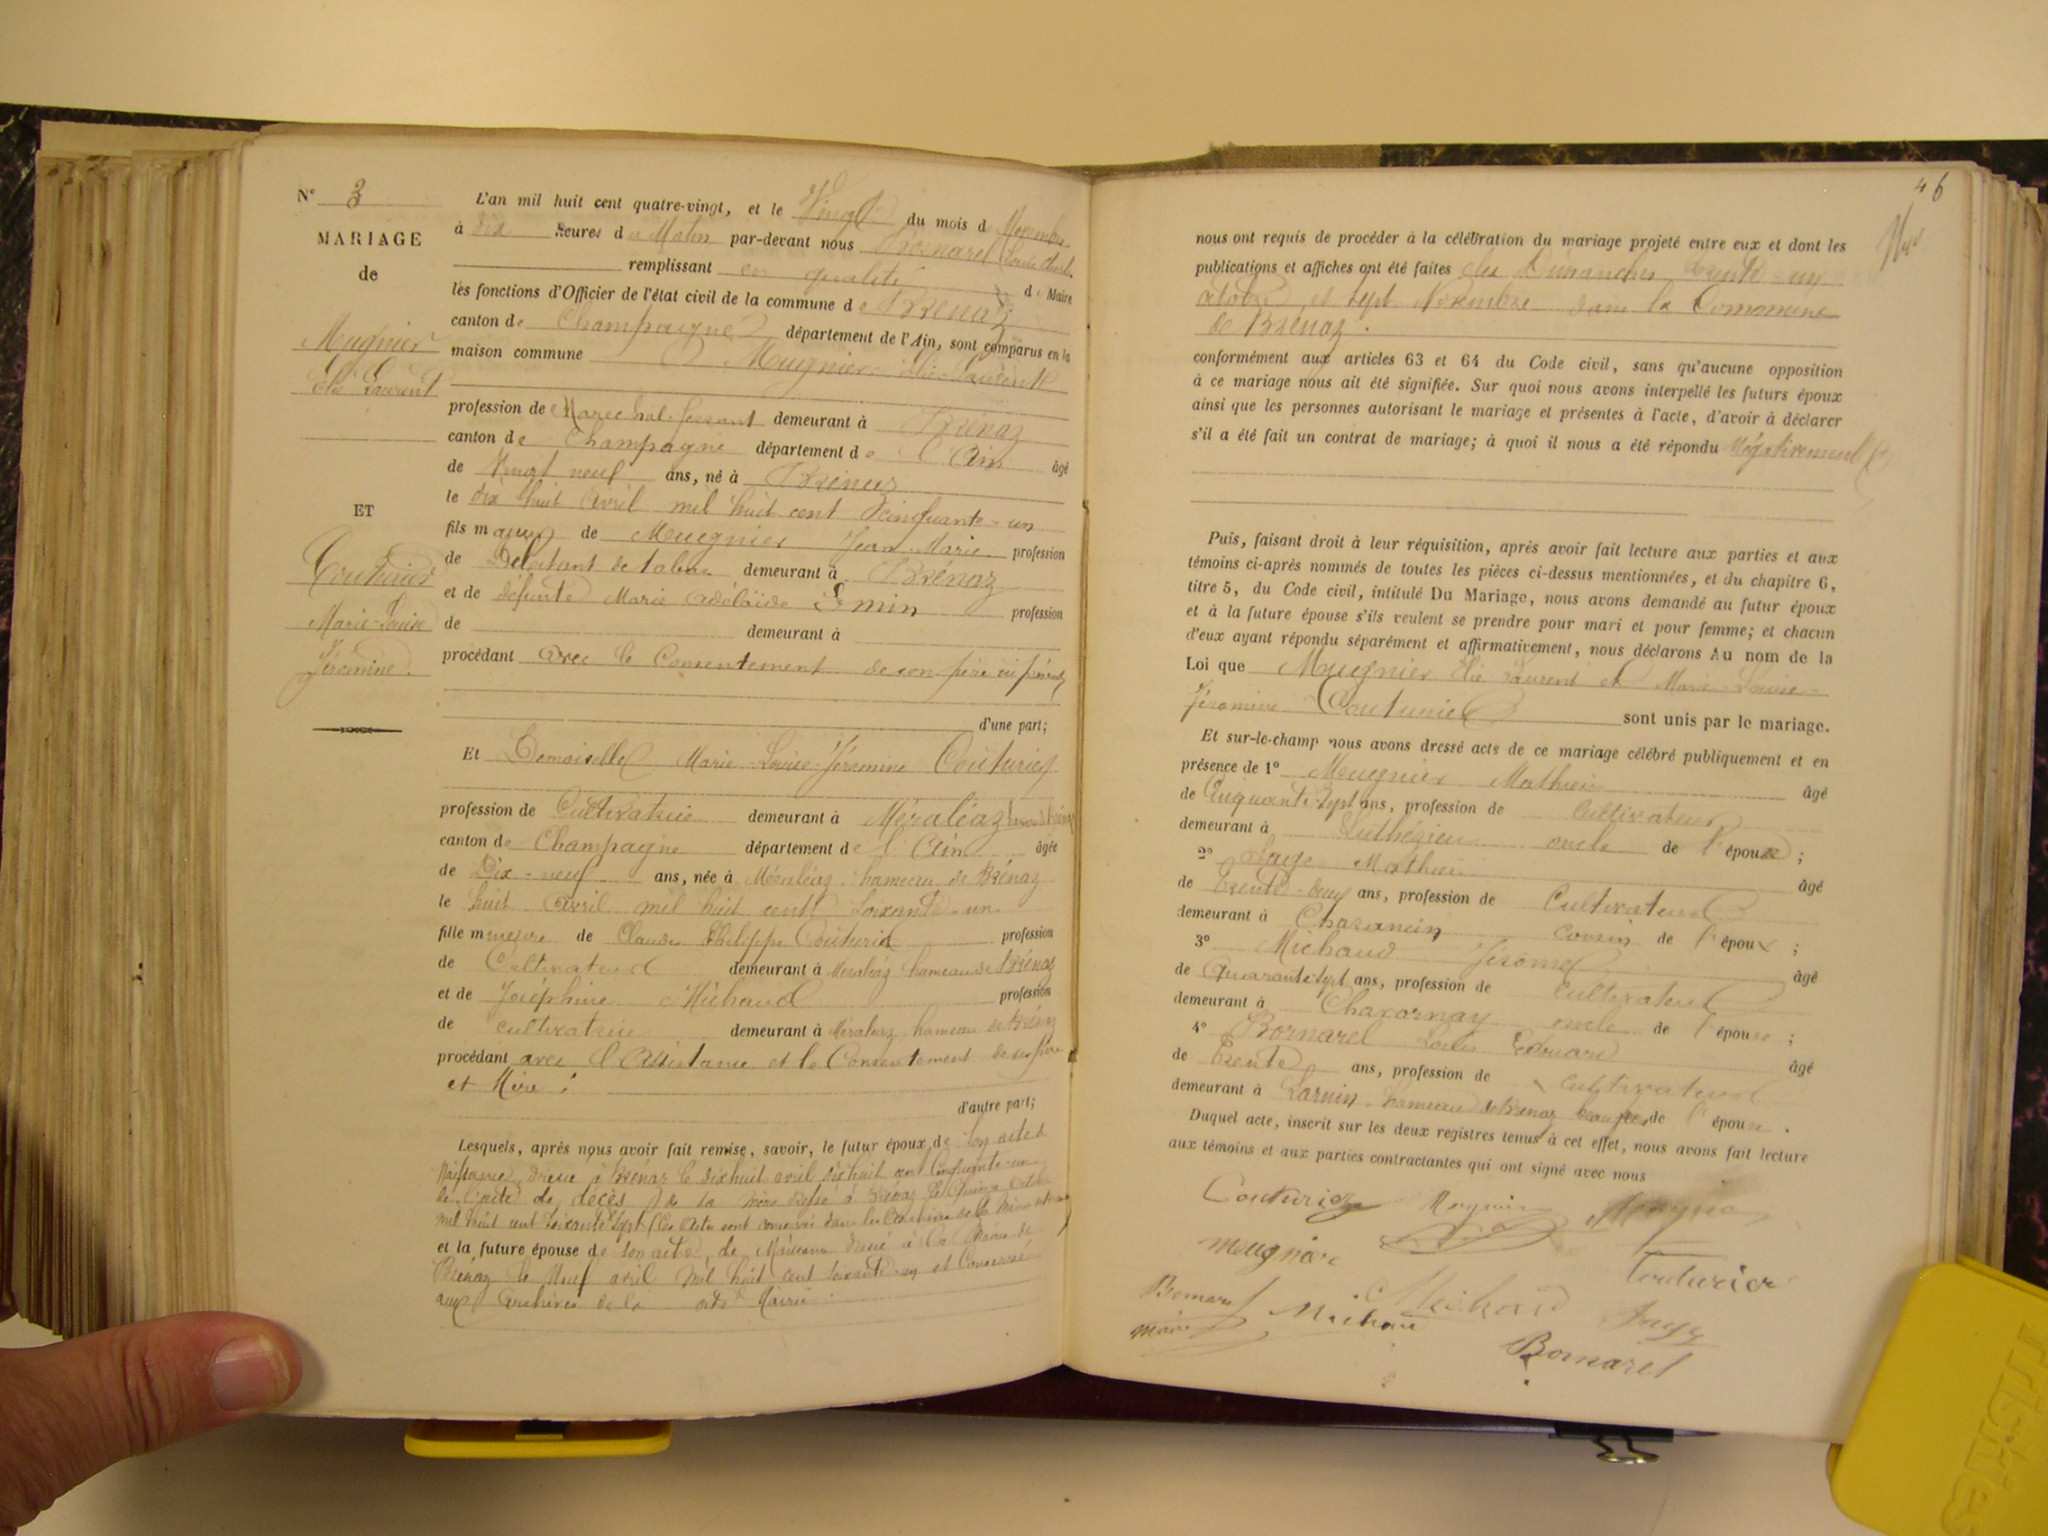 N° 3
MARIAGE
de
Mugnier
Elie Laurent
ET
Couturier
Marie-Louise
Jéromine
L'an mil huit cent quatre-vingt, et le Vingt du mois de Novembre
à dix heures du Matin par-devant nous Bornarel Louis
remplissant en qualité de Maire
les fonctions d'Officier de l'état civil de la commune de Brénaz
canton de Champagne département de l'Ain, sont comparus en la
maison commune Mugnier Elie-Laurent
profession de Maréchal-ferrant demeurant à Brénaz
canton de Champagne département de l'Ain âgé
de Vingt neuf ans, né à Brénaz
le dix huit Avril mil huit cent Cinquante-un
fils majeur de Meugnier Jean-Marie profession
de Débitant de tabac demeurant à Brénaz
et de défunte Marie Adélaïde profession
de demeurant à
procédant avec le Consentement de son père ici présent
d'une part;
Et Demoiselle Marie-Louise-Jéromine Couturier
profession de Cultivatrice demeurant à Méraléaz
canton de Champagne département de l'Ain âgée
de Dix-neuf ans, née à Méraléaz hameau de Brénaz
le huit Avril mil huit cent Soixante-un
fille mineure de Claude Philippe Couturier profession
de Cultivateur demeurant à Méraléaz hameau de Brénaz
et de Joséphine Michaud profession
de cultivatrice demeurant à Méraléaz hameau de Brénaz
procédant avec l'Assistance et le Consentement de ses père
et Mère :
d'autre part;
Lesquels, après nous avoir fait remise, savoir, le futur époux de son acte de
Naissance dressé à Brénaz le dix huit avril dix huit cent Cinquante-un
de l'acte de décès de sa mère à Brénaz le Quinze
mil huit cent Soixante Sept (Ces actes sont conservés dans les Archives de la
et la future épouse de son acte de Naissance dressé à la Mairie de
Brénaz le Neuf avril mil huit cent soixante-un et Conservé
aux Archives de la dite Mairie :
46
nous ont requis de procéder à la célébration du mariage projeté entre eux et dont les
publications et affiches ont été faites les Dimanches trente-un
octobre et sept Novembre dans la Commune
de Brénaz.
conformément aux articles 63 et 64 du Code civil, sans qu'aucune opposition
à ce mariage nous ait été signifiée. Sur quoi nous avons interpellé les futurs époux
ainsi que les personnes autorisant le mariage et présentes à l'acte, d'avoir à déclarer
s'il a été fait un contrat de mariage; à quoi il nous a été répondu Négativement
Puis, faisant droit à leur réquisition, après avoir fait lecture aux parties et aux
témoins ci-après nommés de toutes les pièces ci-dessus mentionnées, et du chapitre 6,
titre 5, du Code civil, intitulé Du Mariage, nous avons demandé au futur époux
et à la future épouse s'ils veulent se prendre pour mari et pour femme; et chacun
d'eux ayant répondu séparément et affirmativement, nous déclarons Au nom de la
Loi que Meugnier Elie Laurent et Marie-Louise-
Jéromine Couturier sont unis par le mariage.
Et sur-le-champ nous avons dressé acte de ce mariage célébré publiquement et en
présence de 1° Meugnier Mathieu âgé
de Cinquante Sept ans, profession de Cultivateur
demeurant à Luthézieu oncle de l'époux ;
2° Mathieu âgé
de trente-deux ans, profession de Cultivateur
demeurant à cousin de l'époux ;
3° Michaud Jérome âgé
de Quarante sept ans, profession de Cultivateur
demeurant à Chavornay oncle de l'épouse ;
4° Bornarel Louis Edouard âgé
de trente ans, profession de Cultivateur
demeurant à hameau de Brénaz de l'épouse .
Duquel acte, inscrit sur les deux registres tenus à cet effet, nous avons fait lecture
aux témoins et aux parties contractantes qui ont signé avec nous
Couturier
meugnier Couturier
Bornarel Michaud Michaud
maire Bornarel